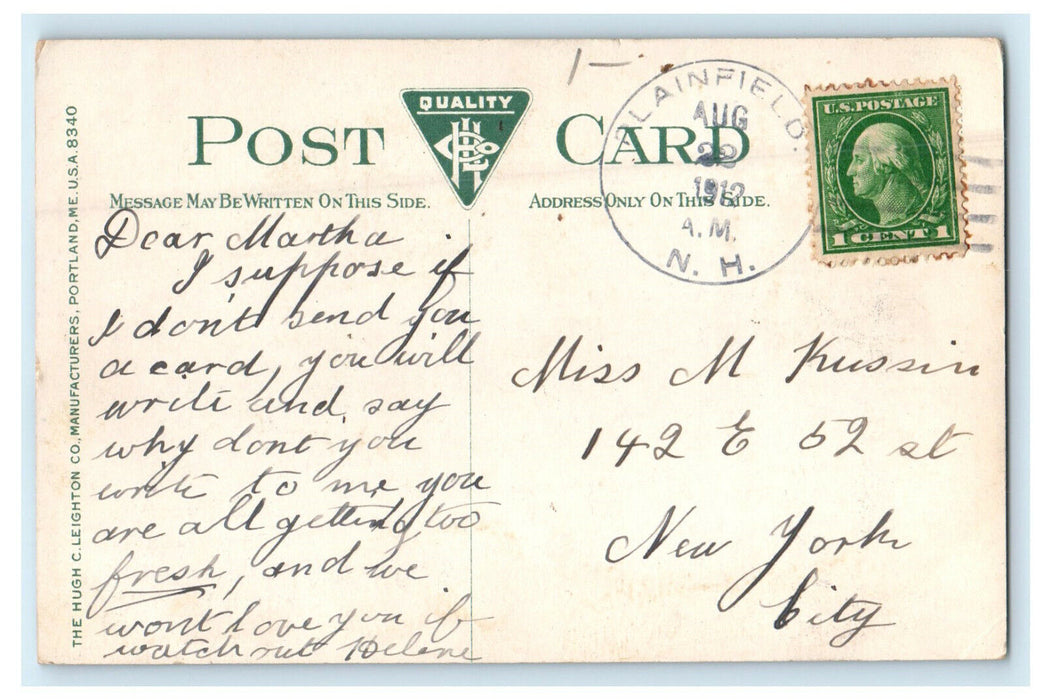 POST CARD
QUALITY
MESSAGE MAY BE WRITTEN ON THIS SIDE.
ADDRESS ONLY ON THIS SIDE.
THE HUGH C. LEIGHTON CO., MANUFACTURERS, PORTLAND, ME. U.S.A. 8340
PLAINFIELD.
AUG
22
1912
A.M.
N. H.
U.S. POSTAGE
1 CENT 1
Dear Martha
I suppose if
I dont send you
a card, you will
write and say
why dont you
write to me, you
are all getting too
fresh, and we
wont love you if
watch out Helene
Miss M Kussin
142 E 52 st
New York
City